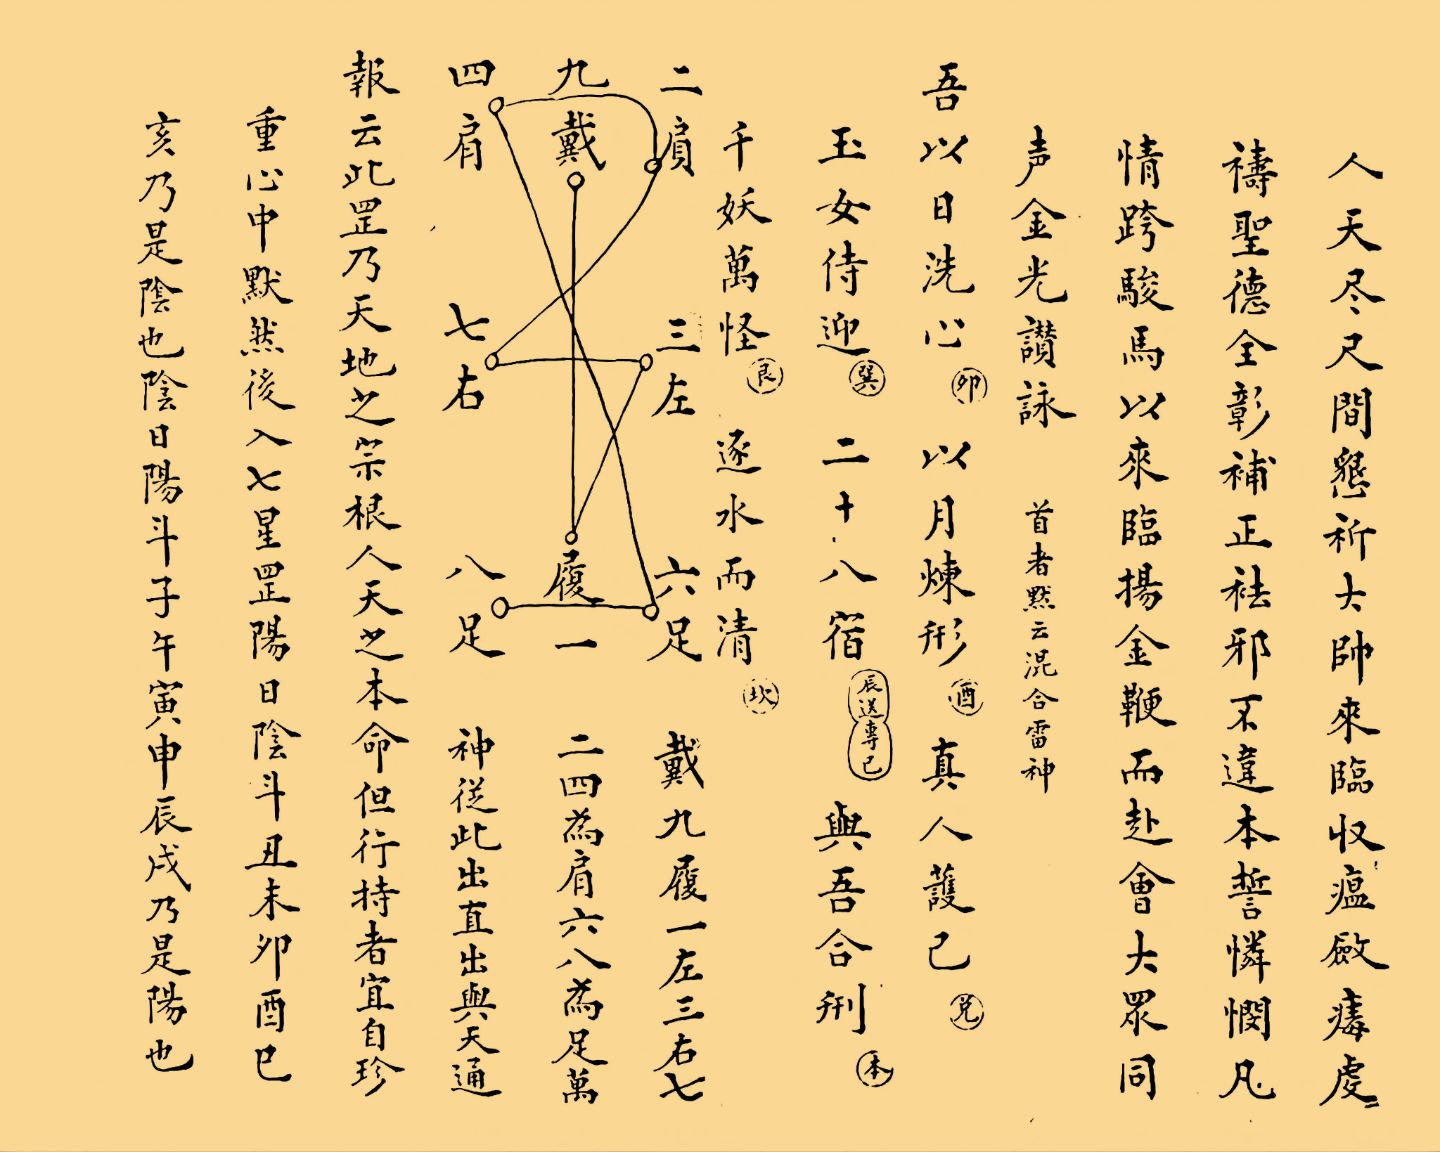 人天尽尺間懇祈大帥來臨収瘟斂痏處=
禱聖德全彰補正祛邪不違本誓憐憫凡
情跨駿馬以來臨揚金鞭而赴會大眾同
声金光讚詠 首者黙云混合雷神
吾以日洗心卯 以月煉形酉 真人護己兌
玉女侍迎巽 二十八宿辰送專已 與吾合形本
千妖萬怪艮 逐水而清坎
二肩
九戴
四肩
三左
七右
六足
履一
八足
戴九履一左三右七
二四為肩六八為足萬
神從此出直出與天通
報云此罡乃天地之宗根人天之本命但行持者宜自珍
重心中默然後入七星罡陽日陰斗丑未卯酉巳
亥乃是陰也陰日陽斗子午寅申辰戌乃是陽也